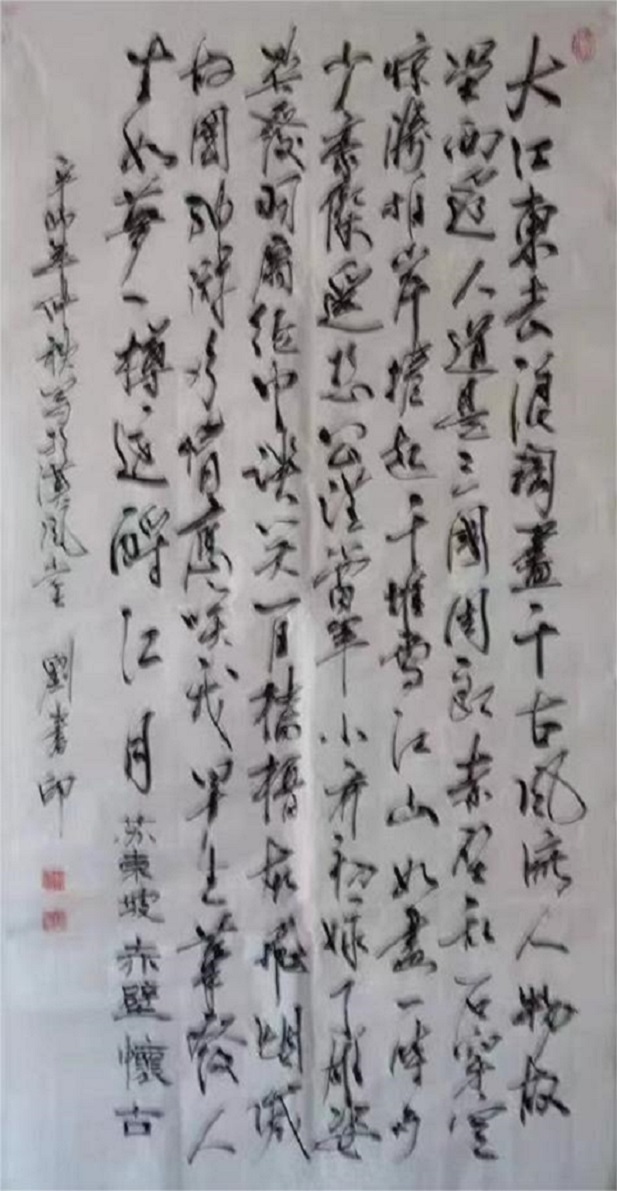 大江東去浪淘盡千古風流人物故
壘西邊人道是三國周郎赤壁乱石穿空
惊濤拍岸捲起千堆雪江山如畫一時多
少豪傑遥想公瑾當年小乔初嫁了雄姿
英發羽扇纶巾談笑間樯櫓灰飛烟滅
故國神游多情應咲我早生華發人
生如夢一樽还酹江月苏東坡赤壁懷古
辛卯年仲秋写於漢風堂劉書印